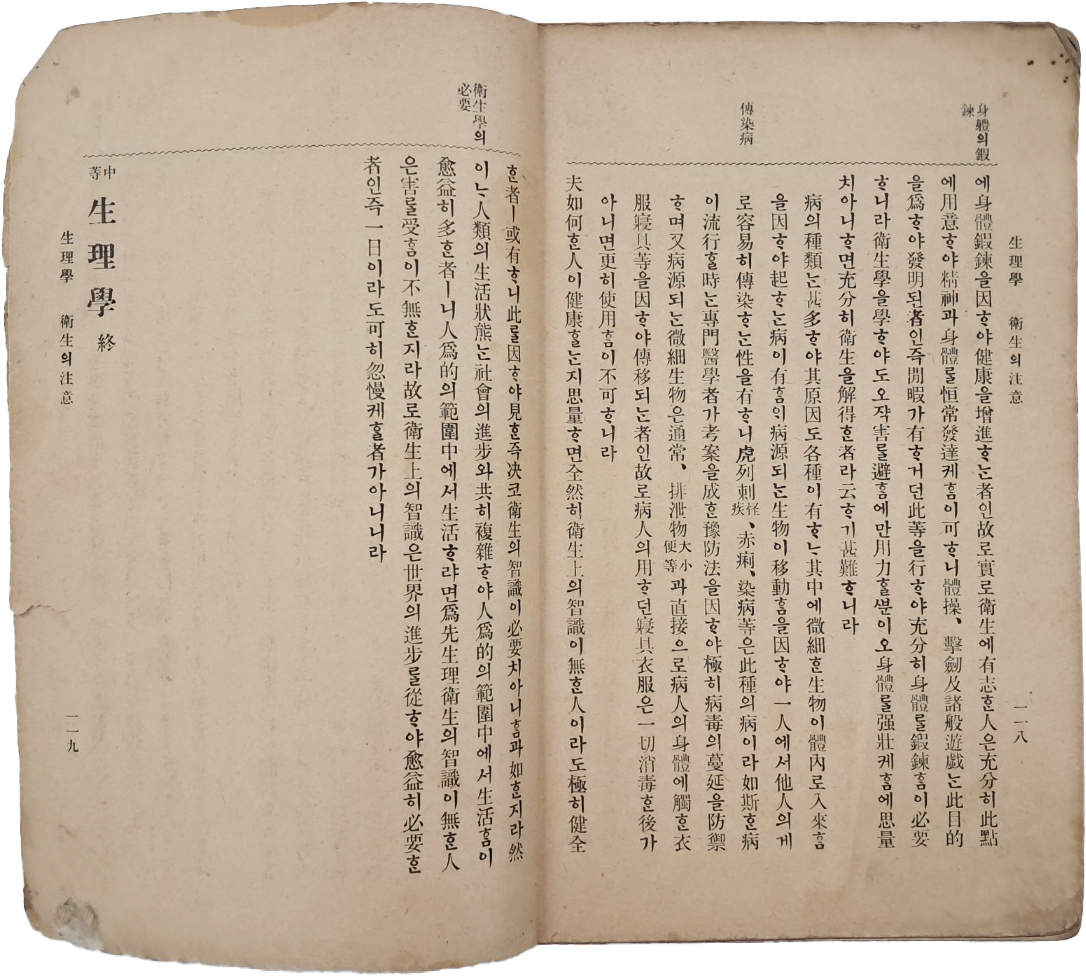 生理學 衛生의注意
一一八
身軆의鍜
鍊
에身體鍜鍊을因ᄒᆞ야健康을增進ᄒᆞᄂᆞᆫ者인故로實로衛生에有志ᄒᆞᆫ人은充分히此點
에用意ᄒᆞ야精神과身體ᄅᆞᆯ恒常發達케ᄒᆞᆷ이可ᄒᆞ니體操、擊劍及諸般遊戱ᄂᆞᆫ此目的
을爲ᄒᆞ야發明된者인즉閒暇가有ᄒᆞ거던此等을行ᄒᆞ야充分히身體ᄅᆞᆯ鍜鍊ᄒᆞᆷ이必要
ᄒᆞ니라衛生學을學ᄒᆞ야도오작害ᄅᆞᆯ避ᄒᆞᆷ에만用力ᄒᆞᆯᄲᅮᆫ이오身體ᄅᆞᆯ强壯케ᄒᆞᆷ에思量
치아니ᄒᆞ면充分히衛生을解得ᄒᆞᆫ者라云ᄒᆞ기甚難ᄒᆞ니라
傳染病
病의種類ᄂᆞᆫ甚多ᄒᆞ야其原因도各種이有ᄒᆞᄂᆞ其中에微細ᄒᆞᆫ生物이體內로入來ᄒᆞᆷ
을因ᄒᆞ야起ᄒᆞᄂᆞᆫ病이有ᄒᆞᆷᄋᆡ病源되ᄂᆞᆫ生物이移動ᄒᆞᆷ을因ᄒᆞ야一人에서他人의게
로容易히傳染ᄒᆞᄂᆞᆫ性을有ᄒᆞ니虎列刺怪疾、赤痢、染病等은此種의病이라如斯ᄒᆞᆫ病
이流行ᄒᆞᆯ時ᄂᆞᆫ專門醫學者가考案을成ᄒᆞᆫ豫防法을因ᄒᆞ야極히病毒의蔓延을防禦
ᄒᆞ며又病源되ᄂᆞᆫ微細生物은通常、排泄物大小便等과直接으로病人의身體에觸ᄒᆞᆫ衣
服寢具等을因ᄒᆞ야傳移되ᄂᆞᆫ者인故로病人의用ᄒᆞ던寢具衣服은一切消毒ᄒᆞᆫ後가
아니면更히使用ᄒᆞᆷ이不可ᄒᆞ니라
夫如何ᄒᆞᆫ人이健康ᄒᆞᆯᄂᆞᆫ지思量ᄒᆞ면全然히衛生上의智識이無ᄒᆞᆫ人이라도極히健全
衛生學의
必要
ᄒᆞᆫ者ㅣ或有ᄒᆞ니此ᄅᆞᆯ因ᄒᆞ야見ᄒᆞᆫ즉决코衛生의智識이必要치아니ᄒᆞᆷ과如ᄒᆞᆫ지라然
이ᄂᆞ人類의生活狀態ᄂᆞᆫ社會의進步와共히複雜ᄒᆞ야人爲的의範圍中에서生活ᄒᆞᆷ이
愈益히多ᄒᆞᆫ者ㅣ니人爲的의範圍中에서生活ᄒᆞ랴면爲先生理衛生의智識이無ᄒᆞᆫ人
은害ᄅᆞᆯ受ᄒᆞᆷ이不無ᄒᆞᆫ지라故로衛生上의智識은世界의進步ᄅᆞᆯ從ᄒᆞ야愈益히必要ᄒᆞᆫ
者인즉一日이라도可히忽慢케ᄒᆞᆯ者가아니니라
中等生理學終
生理學 衛生의注意
一一九